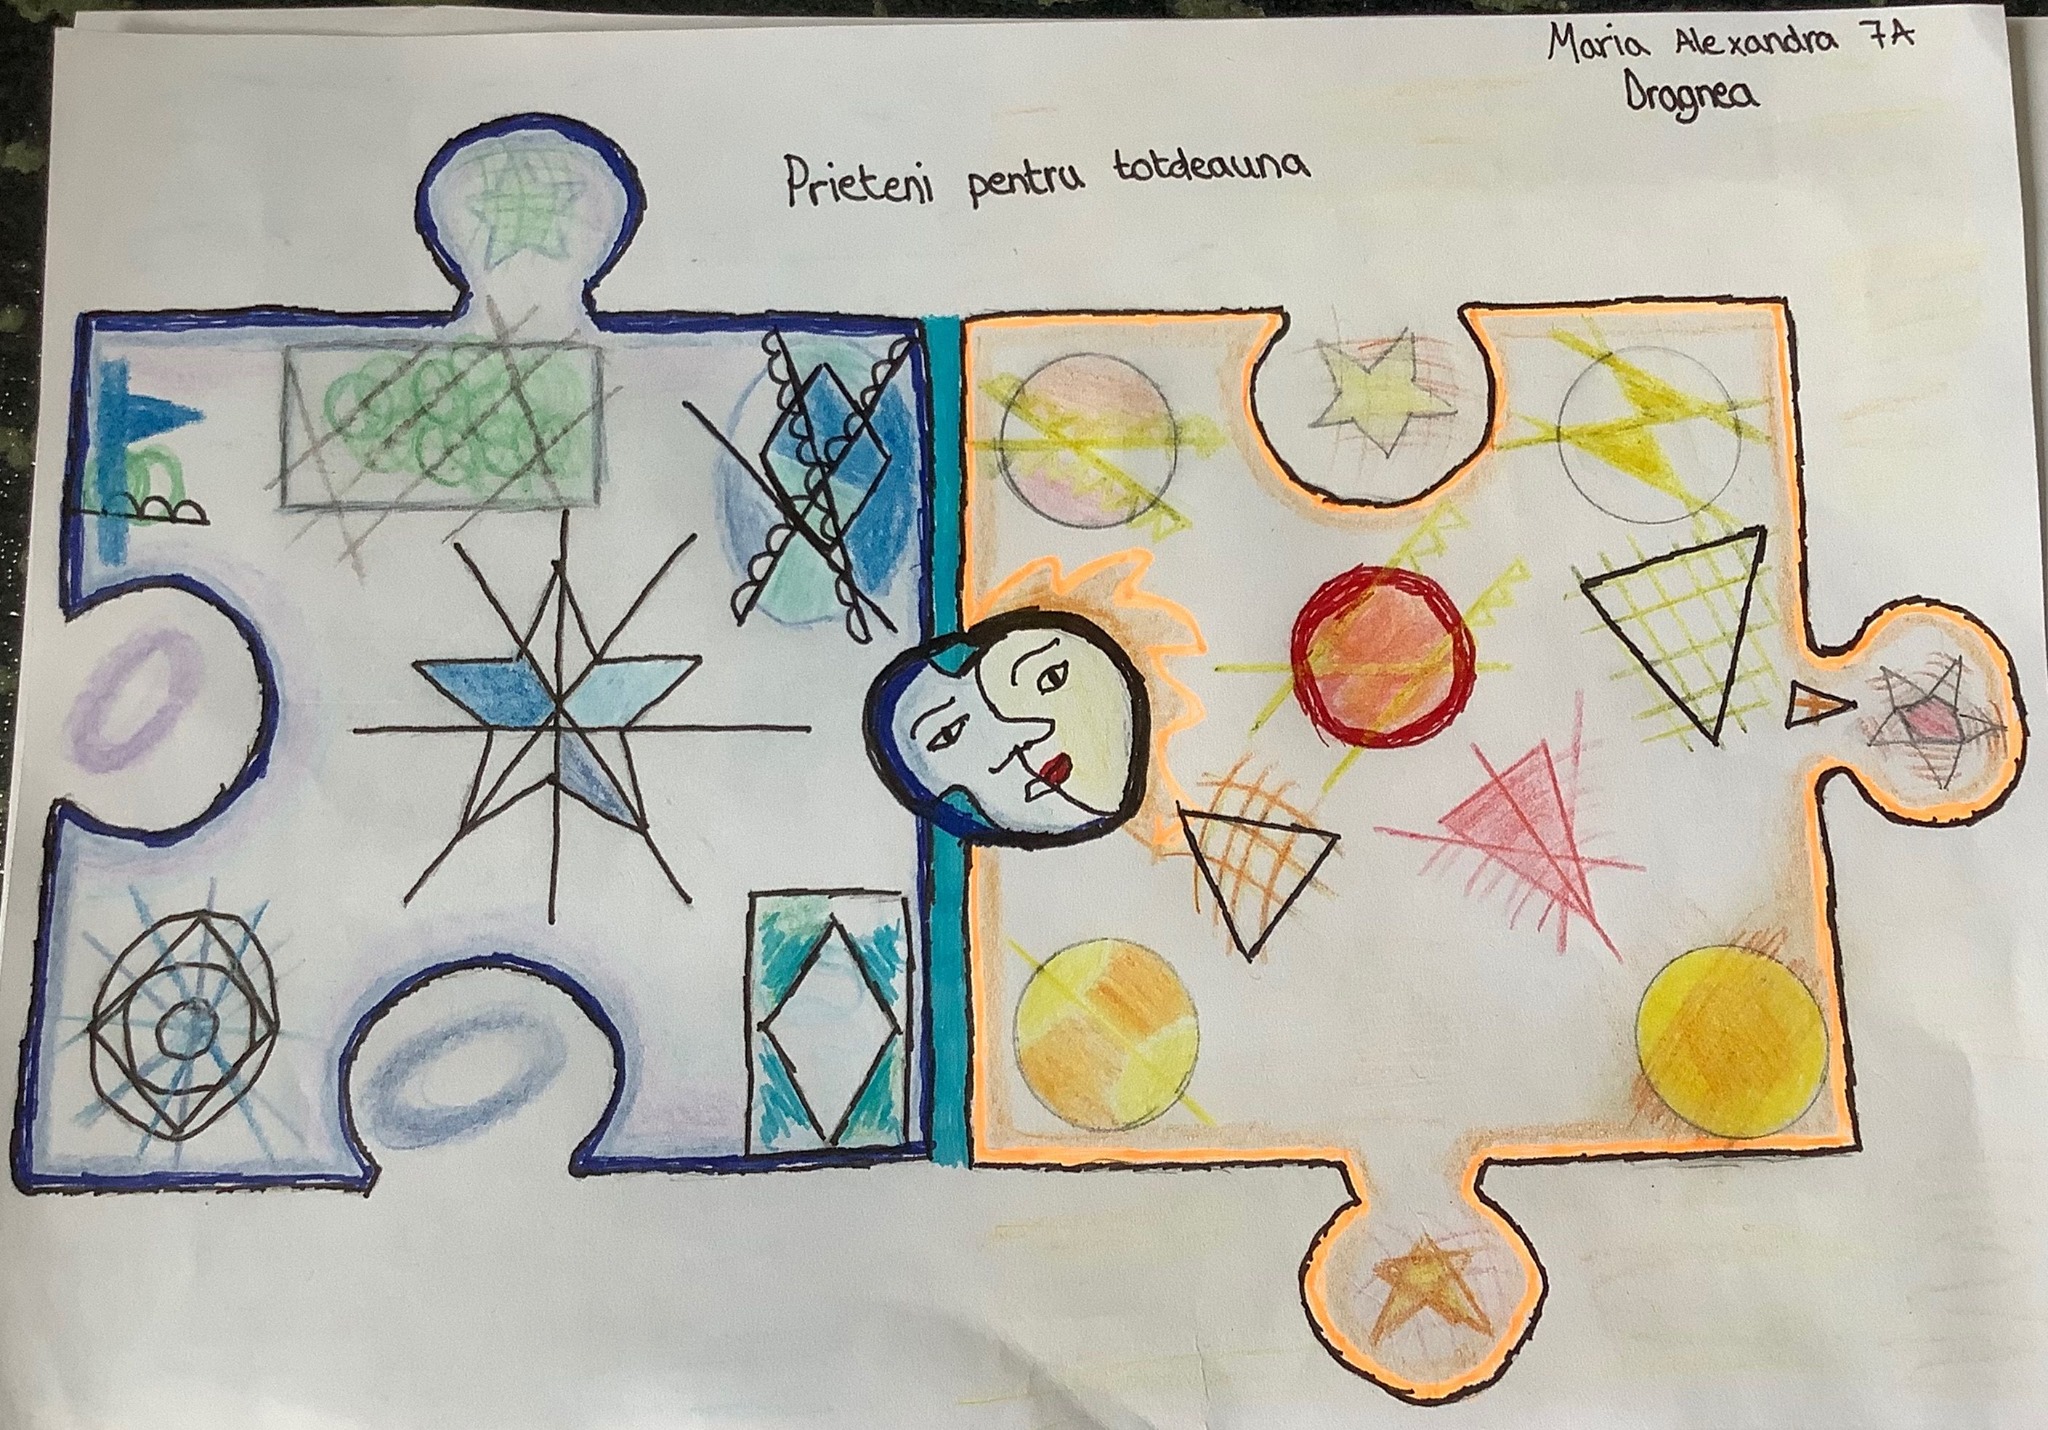 Maria Alexandra 7A
Dragnea
Prieteni pentru totdeauna